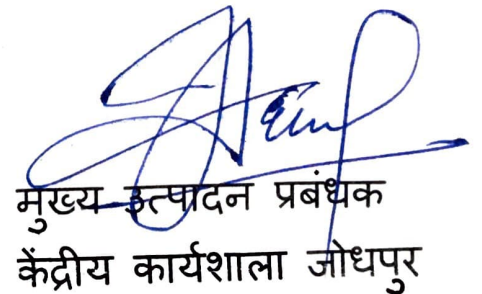 मुख्य उत्पादन प्रबंधक
केंद्रीय कार्यशाला जोधपुर